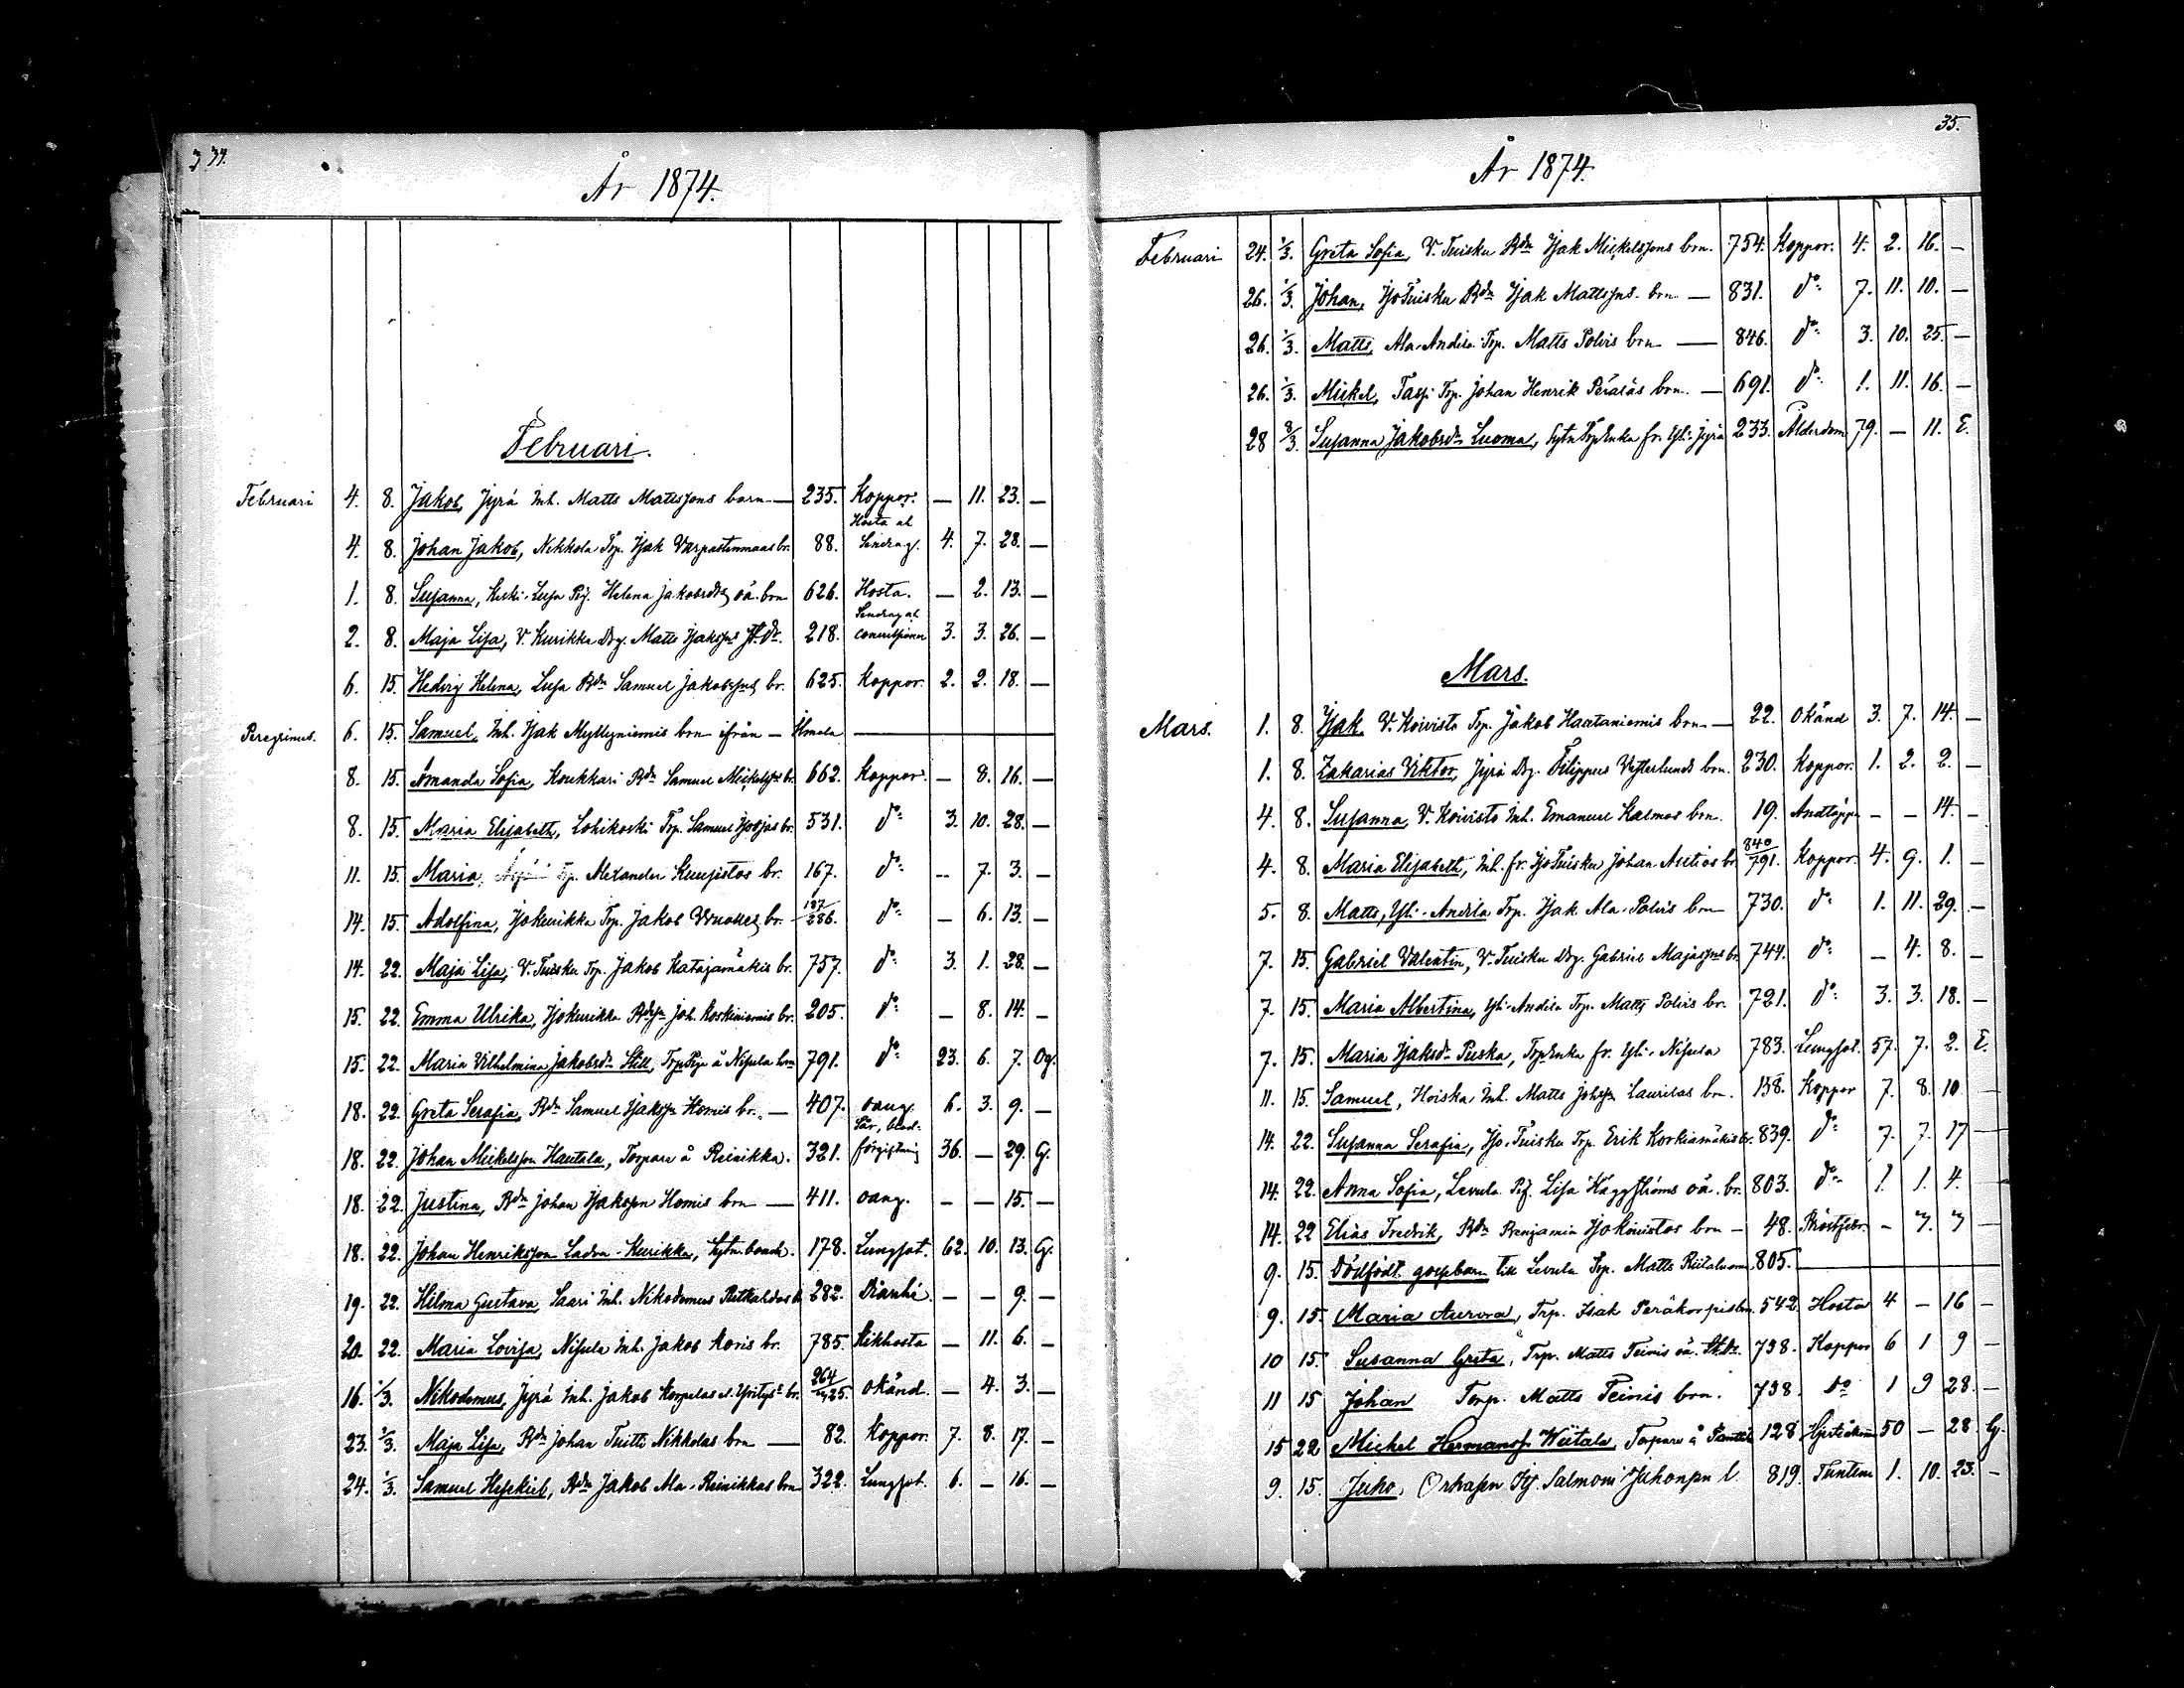 34.
År 1874.
Februari.
Februari 4. 8. Jakob, Jyrä Inh. Matts Mattssons barn — 235. Koppor. — 11. 23. —
4. 8. Johan Jakob, Nikkola Trp. Isak Varpastenmaas br. 88. Hosta al Sendrag. 4. 7. 28. —
1. 8. Susanna, Keski-Lusa Pig. Helena Jakobsdrs oä. brn 626. Hosta. — 2. 13. —
2. 8. Maja Lisa, V. Kurikka Drg. Matts Isakssns 218. Sendrag al convulsioner 3. 3. 26. —
6. 15. Hedvig Helena, Lusa Bdn Samuel Jakobssns br. 625. Koppor. 2. 2. 18. —
Peregrinus. 6. 15. Samuel, Inh. Isak Myllyniemis brn ifrån — Ilmola —
8. 15. Amanda Sofia, Koukkari Bdn Samuel Mickelssns br. 662. Koppor. — 8. 16. —
8. 15. Maria Elisabeth, Lohikoski Trp. Samuel br. 531. do 3. 10. 28. —
11. 15. Maria, Trp. Alexander br. 167. do — 7. 3. —
14. 15. Adolfina, Isokurikka Trp. Jakob br. 187/286. do — 6. 13. —
14. 22. Maja Lisa, V. Tuisku Trp. Jakob Katajamäkis br. 757. do 3. 1. 28. —
15. 22. Emma Ulrika, Isokurikka Joh. Koskiniemis br. 205. do — 8. 14. —
15. 22. Maria Vilhelmina Jakobsdr Still, å Nisula 791. do 23. 6. 7. Og.
18. 22. Greta Serafia, Bdn Samuel Isakssn Homis br. — 407. oang. 6. 3. 9. —
18. 22. Johan Mickelsson Hautala, Torpare å Reinikka. 321. Sår, blod-förgiftning 36. — 29. G.
18. 22. Justina, Bdn Johan Isaksson Homis brn — 411. oang. — — 15. —
18. 22. Johan Henriksson Ladva-Kurikka, Sytn.bonde. 178. Lungsot. 62. 10. 13. G.
19. 22. Hilma Gustava, Saari Inh. Nikodemus 282. Diarrhé. — — 9. —
20. 22. Maria Lovisa, Nisula Inh. Jakob Koris br. 785. Kikhosta — 11. 6. —
16. 1/3. Nikodemus, Jyrä Inh. Jakob Korpelas br. 264/ okänd. — 4. 3. —
23. 1/3. Maja Lisa, Bdn Johan Tuitti Nikkolas brn — 82. Koppor. 7. 8. 17. —
24. 1/3. Samuel Hesekiel, Bdn Jakob Ala-Reinikkas brn 322. Lungsot. 6. — 16. —
35.
År 1874.
Februari 24. 1/3. Greta Sofia, V. Tuisku Bdn Isak Mickelssons brn. 754. Koppor. 4. 2. 16. —
26. 1/3. Johan, Iso Tuisku Bdn Isak Mattssns. brn — 831. do 7. 11. 10. —
26. 1/3. Matts, Ala-Andila Trp. Matts Polvis brn — 846. do 3. 10. 25. —
26. 1/3. Mickel, Trp. Johan Henrik Peräläs brn. — 691. do 1. 11. 16. —
28 8/3. Susanna Jakobsdr Luoma, Sytn. TrpEnka fr. Yli-Jyrä 233. Ålderdom 79. — 11. E.
Mars.
Mars. 1. 8. Isak V. Koivisto Trp. Jakob Haataniemis brn — 22. Okänd 3. 7. 14. —
1. 8. Zakarias Viktor, Jyrä Drg. Filippus Vesterlunds brn. 230. Koppor. 1. 2. 2. —
4. 8. Susanna, V. Koivisto Inh. Emanuel Kalmos brn. 19. Andtäppa — — 14. —
4. 8. Maria Elisabeth, Inh. fr. Iso Tuisku, Johan Antios br 840/791. Koppor. 4. 9. 1. —
5. 8. Matts, Yli-Andila Trp. Isak Ala-Polvis brn 730. do 1. 11. 29. —
7. 15. Gabriel Valentin, V. Tuisku Drg. Gabriel Majassns br. 744. do — 4. 8. —
7. 15. Maria Albertina, Yli-Andila Trp. Matts Polvis br. 721. do 3. 3. 18. —
7. 15. Maria Isaksdr Puska, TrpEnka fr. Yli-Nisula 783. Lungsot. 57. 7. 2. E.
11. 15. Samuel, Hoiska Inh. Matts Johssn Laurilas brn. 158. Koppor 7. 8. 10 —
14. 22. Susanna Serafia, Iso-Tuisku Trp. Erik Korkiamäkis br. 839. do 7. 7. 17 —
14. 22. Anna Sofia, Levula Pig. Lisa Häggströms oä. br. 803. do 1. 1. 4. —
14. 22 Elias Fredrik, Bdn Benjamin Isokoivistos brn — 48. Bröstfeber. — 7. 7 —
9. 15. Dödfödt gossbarn till Levula Trp. Matts 805. —
9. 15. Maria Aurora, Trp. Isak Peräkorpis brn. 542. Hosta 4 — 16 —
10 15. Susanna Greta, Trp. Matts Teinis oä. 738. Koppor 6 1 9 —
11 15 Johan Torp. Matts Teinis brn. 738. do 1 9 28. —
15 22 Mickel Hermanss. Wiitala, Torpare å 128 50 — 28 G.
9. 15. Juho, Salmoni Juhonpn l. 819. Tuntem 1. 10. 23. —